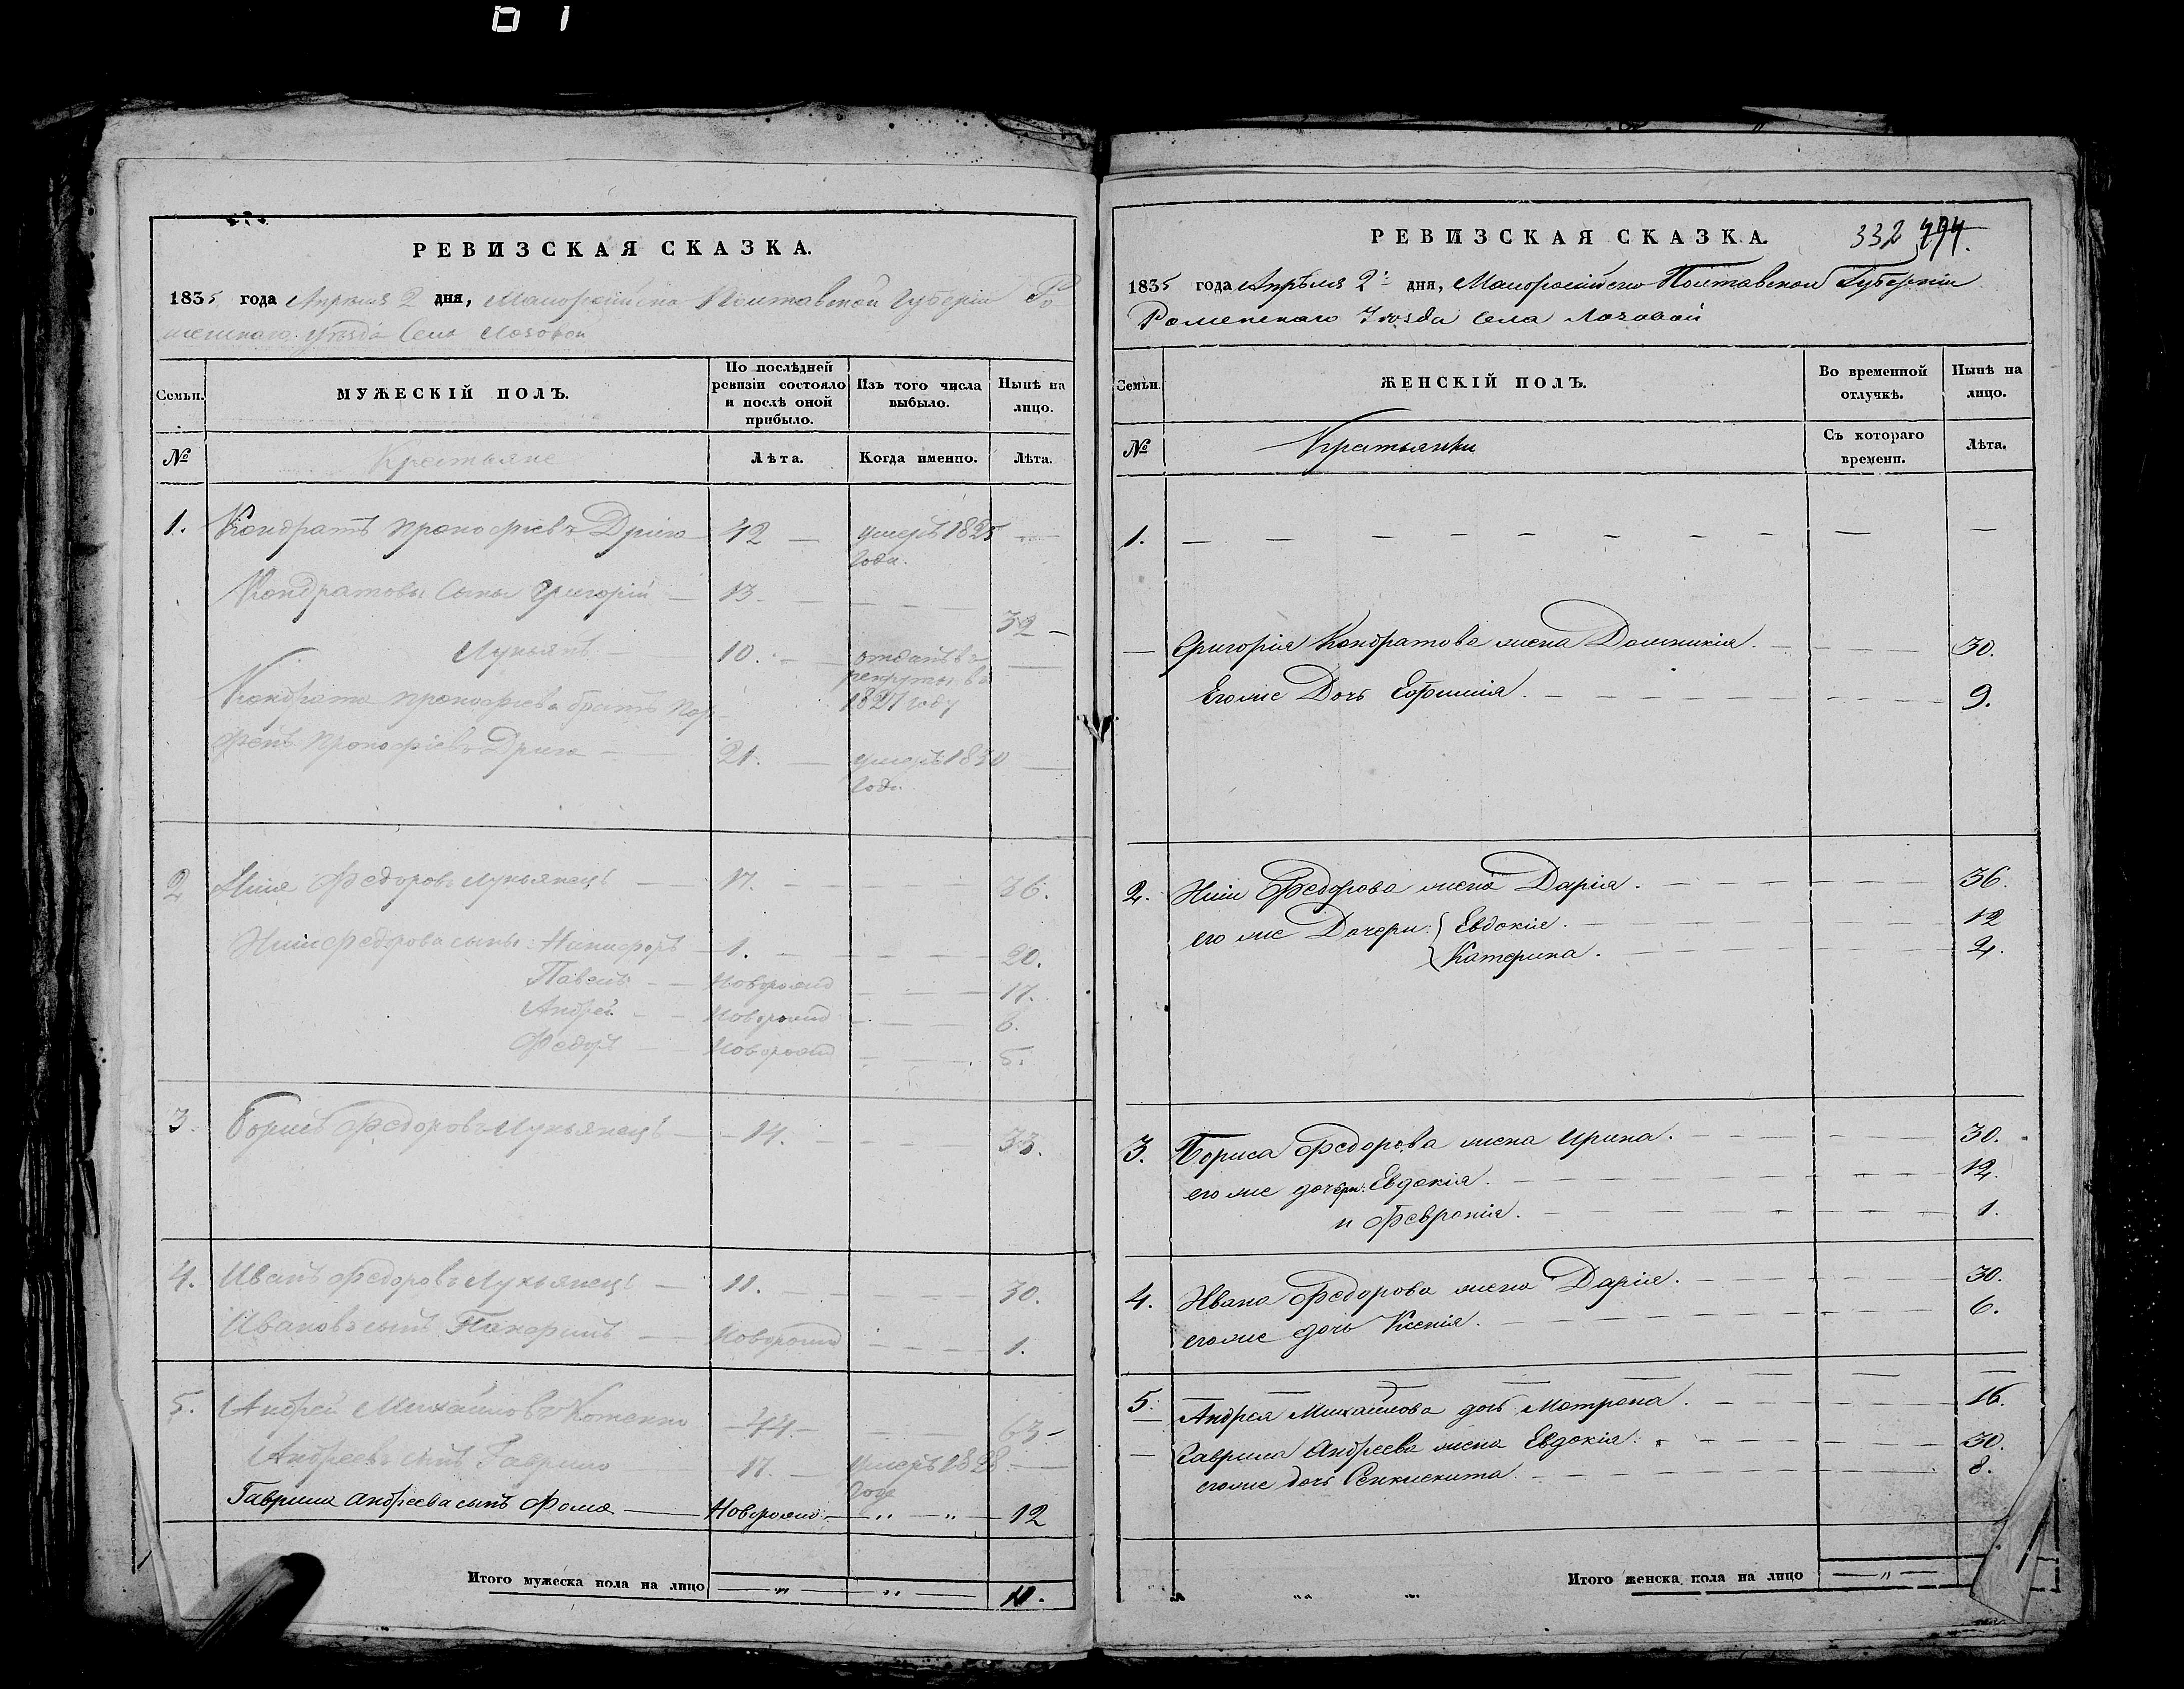 РЕВИЗСКАЯ СКАЗКА.
1835 года Апреля 2 дня, Малоросійско Полтавской Губерніи Ро
менскаго Уезда Села Лозовой
Семьи.
МУЖЕСКІЙ ПОЛЪ.
По послѣдней ревизіи состояло и послѣ оной прибыло.
Изъ того числа выбыло.
Нынѣ на лицо.
№
Крестьяне
Лѣта.
Когда именно.
Лѣта.
1. Кондратъ Прокофіевъ Дрига — 42 — умеръ 1825 года. —
Кондратовы сыны Григорій — 13. — 32 —
Лукьянъ — 10. — отданъ въ рекруты въ 1827 году —
Кондрата Прокофіева братъ Пар-
фенъ Прокофіевъ Дрига — 21. — умеръ 1830 года —
2 Федоровъ Лукьянецъ — 17. — 36.
Федорова сыны: Никифоръ — 1. — 20.
Павелъ — Новорожд — 17.
Андрей — Новорожд — 6.
Федоръ — Новорожд — 5.
3. Борисъ Федоровъ Лукьянецъ — 14. — 33.
4. Иванъ Федоровъ Лукьянецъ — 11. — 30.
Ивановъ сынъ — Новорожд — 1.
5. Андрей Михайловъ — 44. — 63 —
Андреевъ сынъ Гаврило 17. — умеръ 1828 года —
Гаврила Андреева сынъ Фома — Новорожд. — „ — „ — 12
Итого мужеска пола на лицо — „ — „ — 11.
РЕВИЗСКАЯ СКАЗКА.
332 494.
1835 года Апрѣля 2 дня, Малоросійско Полтавской Губерніи
Роменскаго Уѣзда Села Лозовой
Семьи.
ЖЕНСКІЙ ПОЛЪ.
Во временной отлучкѣ.
Нынѣ на лицо.
№
Крестьянки
Съ котораго времени.
Лѣта.
1. — — — — — — — — — — —
— Григорія Кондратова жена Домникія. — — — 30.
Егоже Дочь Ефимія. — — — — 9.
2. Федорова жена Дарія. — — — — 36.
его же Дочери: Евдокія. — — — — 12
Катерина. — — — — 4.
3. Бориса Федорова жена Ирина. — — — — 30.
его же дочери: Евдокія. — — — — 12.
и Февронія. — — — — 1.
4. Ивана Федорова жена Дарія. — — — — 30.
егоже дочь Ксенія. — — — — 6.
5. Андрея Михайлова дочь Мотрона. — — — — 16.
— Гаврила Андреева жена Евдокія. — — — — 30.
егоже дочь — — — — 8.
Итого женска пола на лицо — „ —